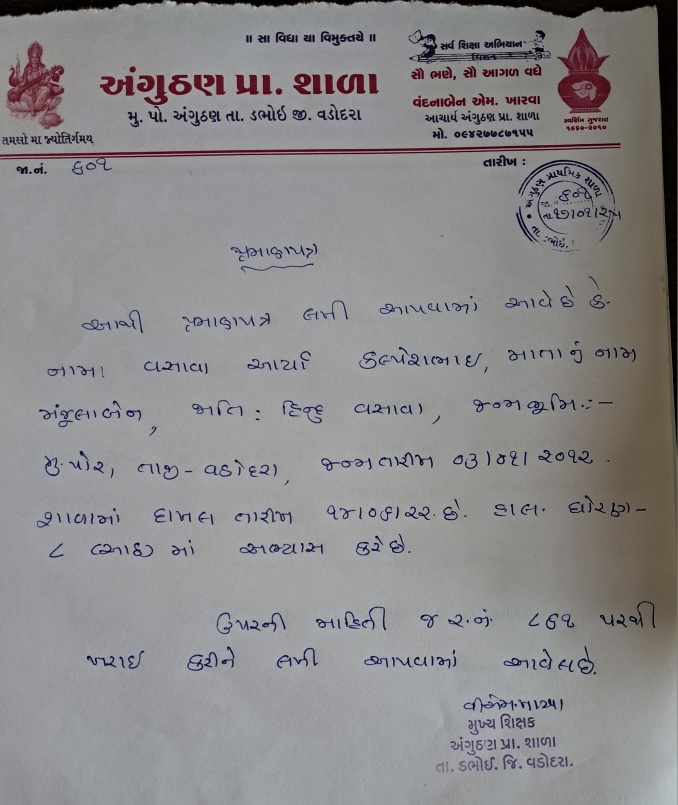 ॥ સા વિદ્યા યા વિમુક્તયે ॥
સર્વ શિક્ષા અભિયાન
સૌ ભણે, સૌ આગળ વધે
અંગુઠણ પ્રા. શાળા
મુ. પો. અંગુઠણ તા. ડભોઇ જી. વડોદરા
વંદનાબેન એમ. ખારવા
આચાર્ય અંગુઠણ પ્રા. શાળા
મો. ૦૯૪૨૭૭૮૭૧૫૫
સ્વર્ણિમ ગુજરાત
૧૯૬૦-૨૦૧૦
તમસો મા જ્યોતિર્ગમય્
જા.નં. ૬૦૧
તારીખ :
અંગુઠણ પ્રાથમિક શાળા
૬૦૧
તા. ૧૭/૦૧/૨૫
તા. ડભોઈ.
પ્રમાણપત્ર
આથી પ્રમાણપત્ર લખી આપવામાં આવે છે કે-
નામ: વસાવા આર્યા કલ્પેશભાઇ, માતાનું નામ
મંજુલાબેન, જાતિ : હિન્દુ વસાવા, જન્મભૂમિ:-
મુ.પોર, તાજી-વડોદરા, જન્મતારીખ ૦૩/૦૧/૨૦૧૨.
શાળામાં દાખલ તારીખ ૧૪/૦૬/૨૨ છે. હાલ ધોરણ-
૮ (આઠ) માં અભ્યાસ કરે છે.
ઉપરની માહિતી જ.ર.નં. ૮૬૧ પરથી
ખરાઇ કરીને લખી આપવામાં આવેલ છે.
મુખ્ય શિક્ષક
અંગુઠણ પ્રા. શાળા
તા. ડભોઈ. જિ. વડોદરા.